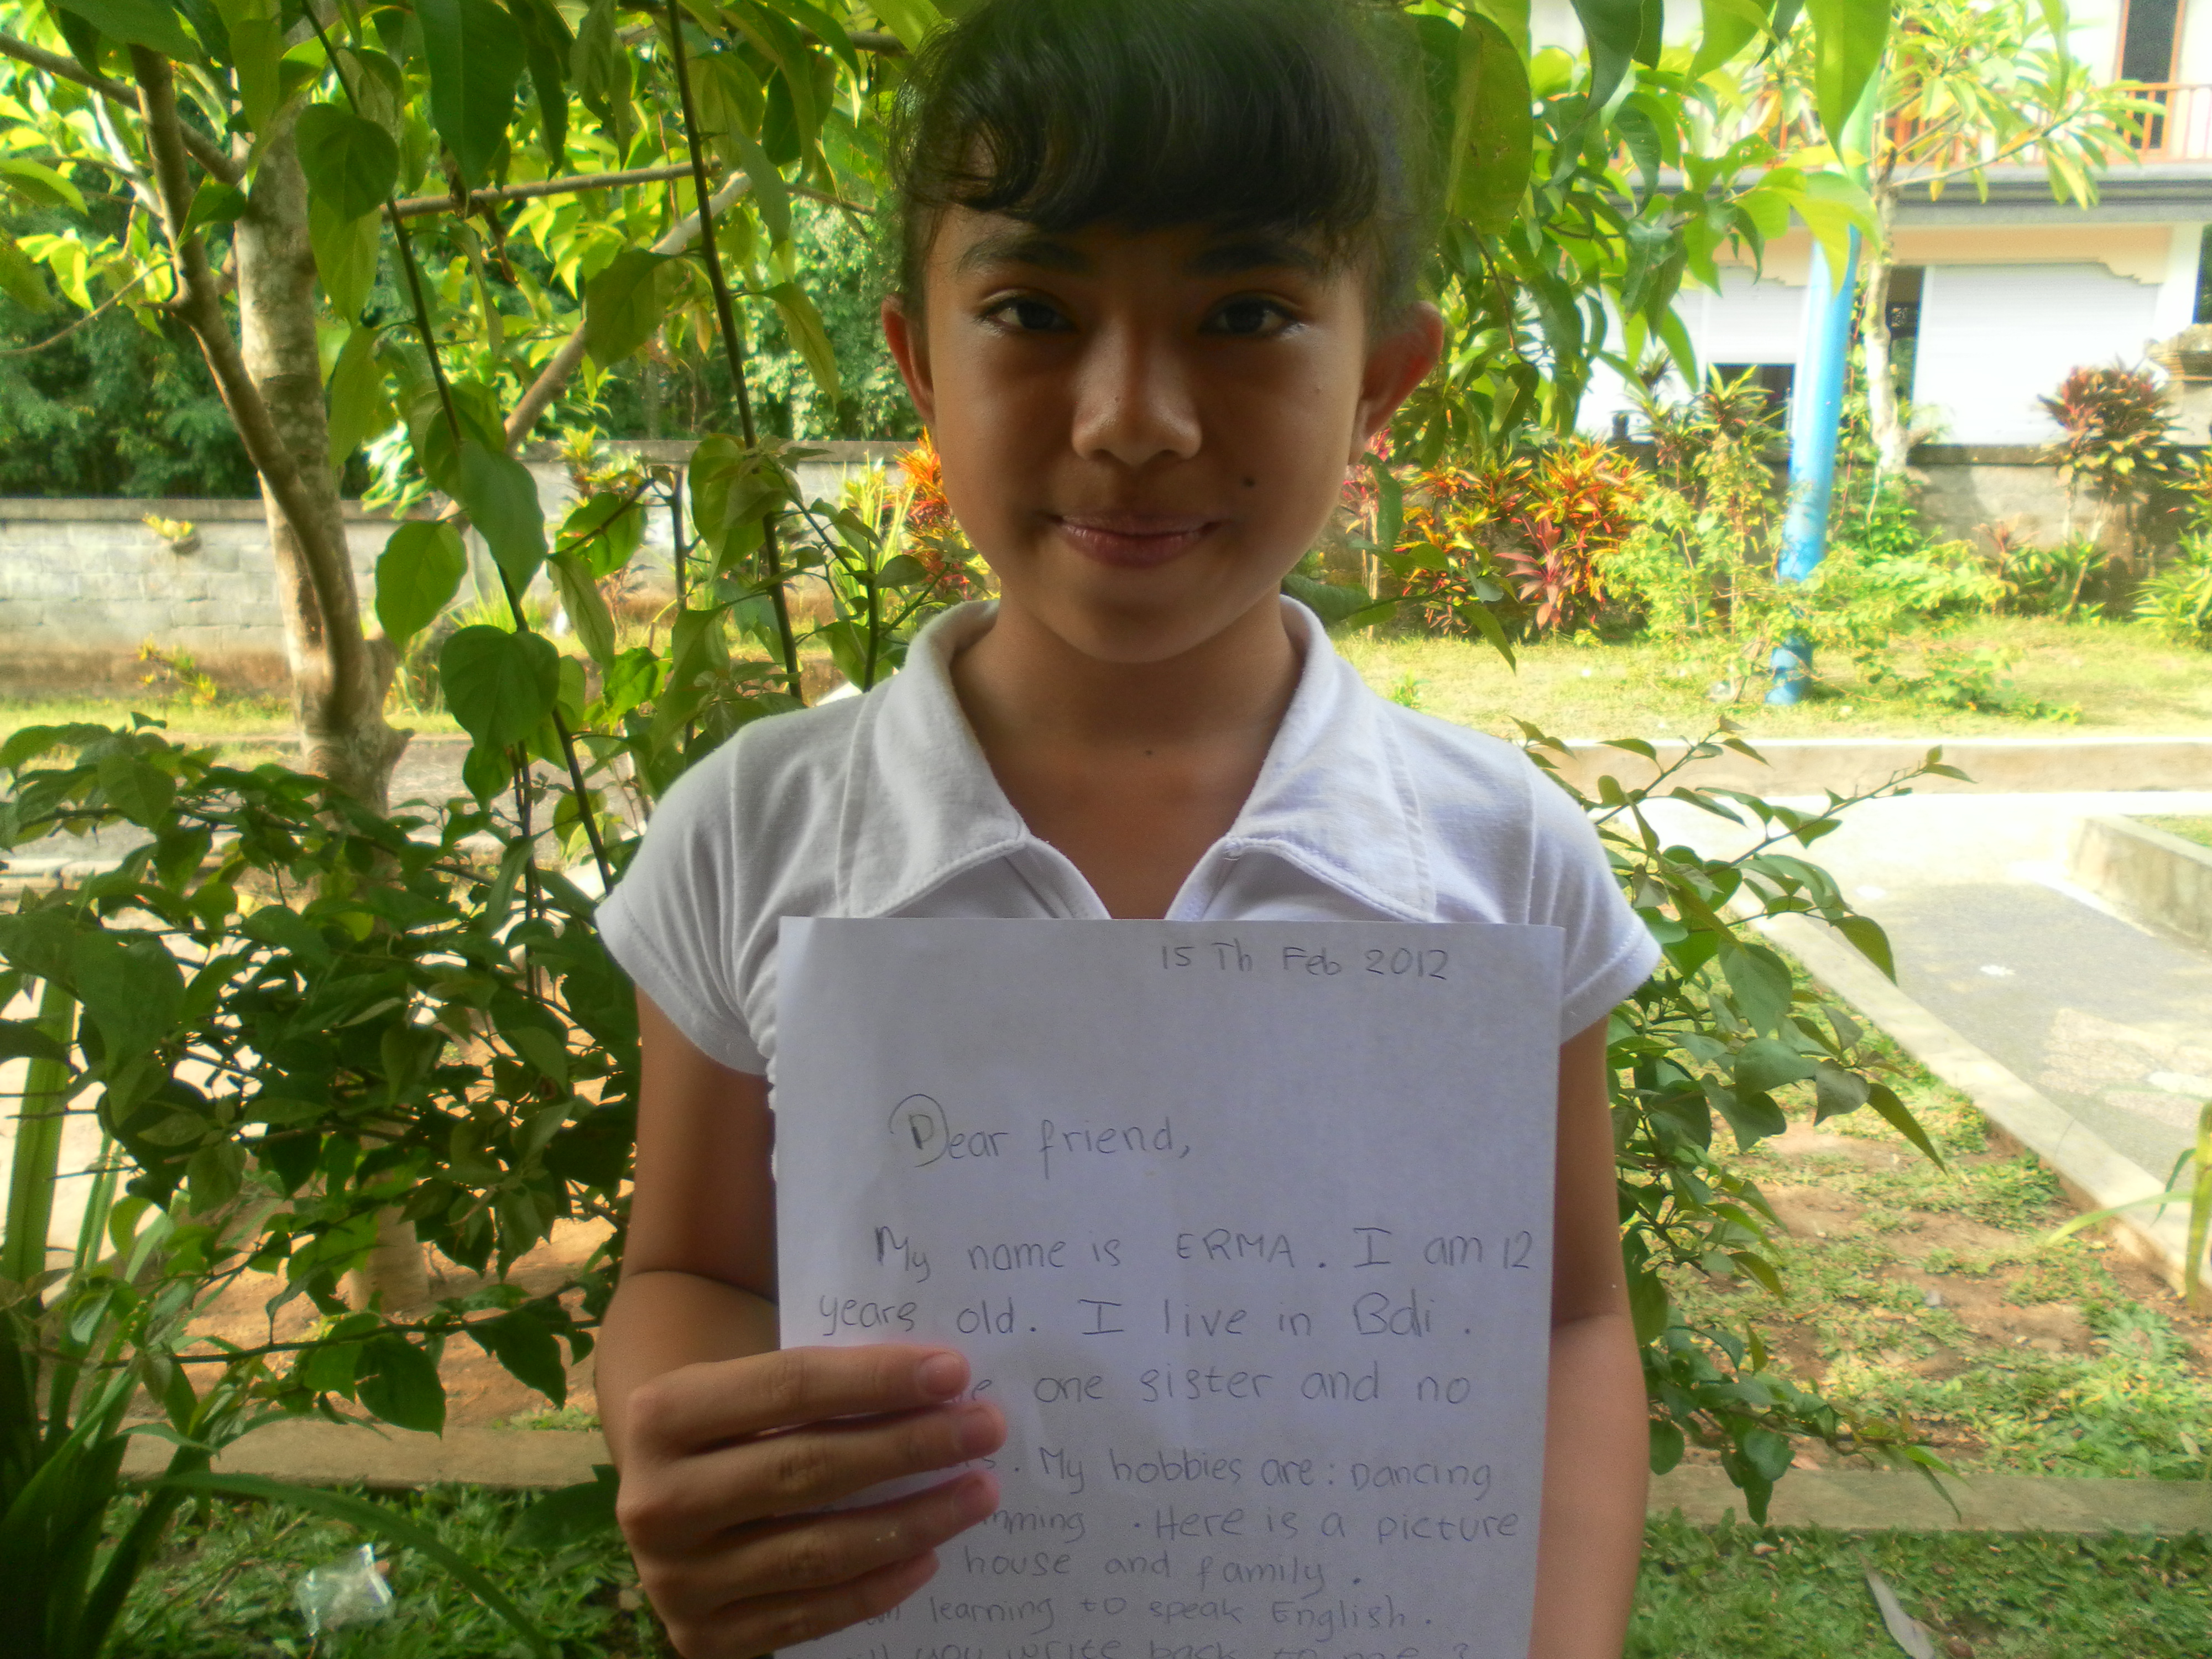 15 Th Feb 2012
Dear friend,
My name is ERMA. I am 12
years old. I live in Bali.
one sister and no
. My hobbies are: Dancing
. Here is a picture
house and family.
learning to speak English.
you write back to me?